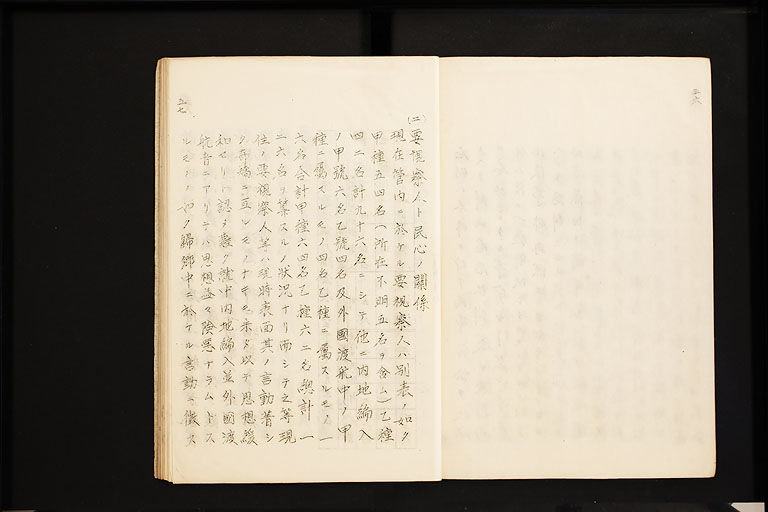 五六
(二)要視察人ト民心ノ關係
現在管内ニ於ケル要視察人ハ別表ノ如ク
甲種五四名(所在不明五名ヲ含ム)乙種
四二名計九十六名ニシテ他ニ内地編入
ノ甲號六名乙號四名及外國渡航中ノ甲
種ニ屬スルモノ四名乙種ニ屬スルモノ一
六名合計甲種六四名乙種六二名總計一
二六名ヲ算スルノ状況ナリ而シテ之等現
住ノ要視察人等ハ現時表面其ノ言動著シ
ク喜噪ニ亘レモノナキモ未タ以テ思想緩
和セリト認メ難ク就中内地編入並外國渡
航者ニアリテハ思想益々険悪ナラムトス
ルモノノ如ク歸鄉中ニ於ケル言動ニ徴ス
五七